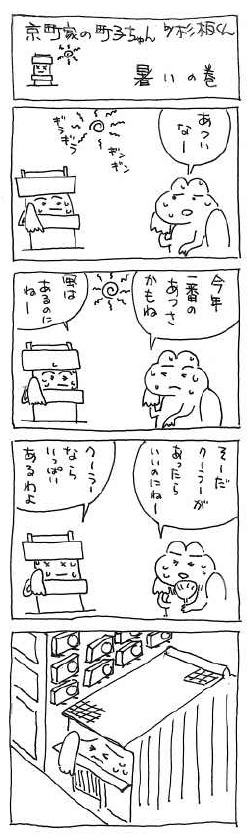 京町家の町子ちゃん
杉相くん
暑いの巻
あつい
なー
ギラ
ギラ
ギン
ギン
今年
一番の
あつさ
かもね
風は
あるのに
ねー
そーだ
クーラーが
あったら
いいのにねー
クーラー
なら
いっぱい
あるわよ